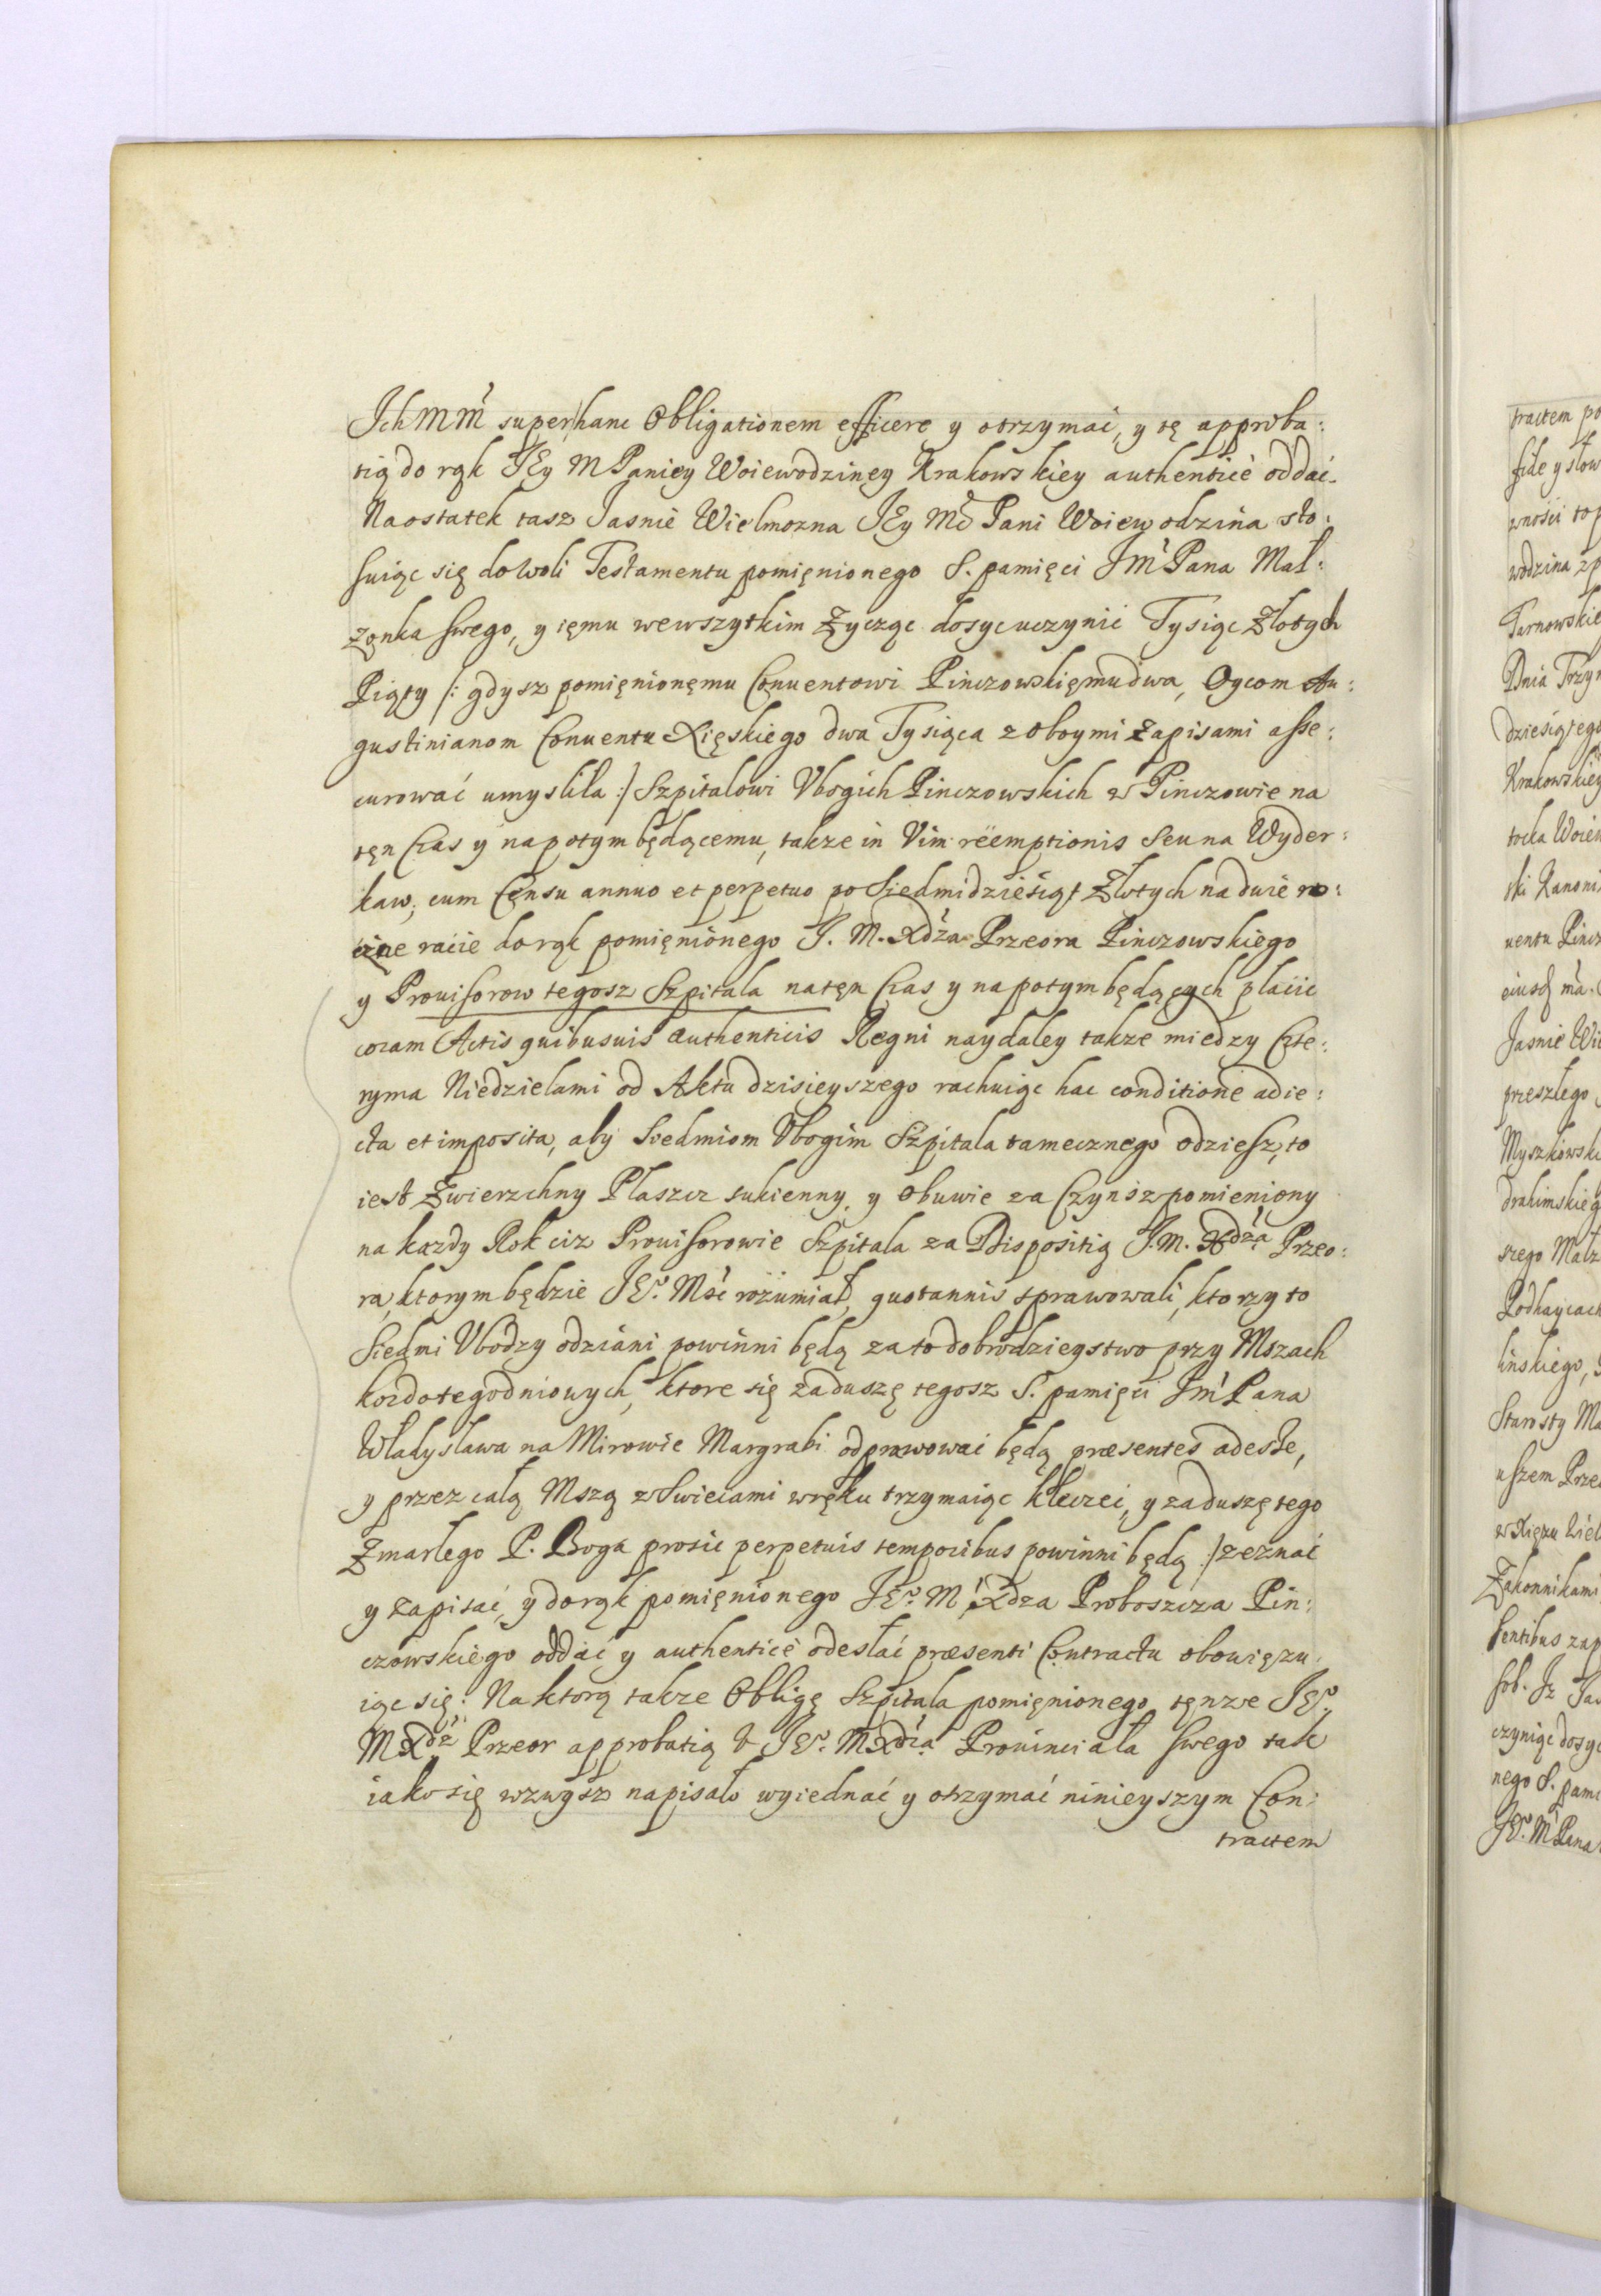 Ich Mm̃ super hanc Obligationem efficere y otrzymać, y tę approba:
tią do rąk JEy M Paniey Woiewodziney Krakowskiey authenticè oddać.
Naostatek tasz Jasnie Wielmozna JEy Mć Pani Woiewodzina sto:
suiąc się dowoli Testamentu pomięnionego S. pamięci JM Pana Mał:
zonka swego, y ięmu wewszytkim Zycząc dosyc uczynić Tysiąc Złotych
Piąty /: gdysz pomięnionęmu Conuentowi Pinczowskięmu dwa, Oycom Au:
gustinianom Conuentu Xięskiego dwa Tysiąca zoboymi zapisami asse:
curować umysliła :/ Szpitalowi Vbogich Pinczowskich w Pinczowie na
tęn Czas y napotym będącemu, takze in Vim reemptionis seu na Wyder:
kaw, cum Censu annuo et perpetuo po Siedmidziesiąt Złotych na dwie ro:
czne racie do rąk pomięnionego J. M. Xdza Przeora Pinczowskiego
y Prouisorow tegosz Szpitala natęn Czas y napotym będących płacić
coram Actis quibusuis authenticis Regni naydaley takze miedzy Czte:
ryma Niedzielami od Aktu dzisieyszego rachuiąc hac conditione adie:
cta et imposita, aby Siedmiom Vbogim Szpitala tamecznego odziesz, to
iest Zwierzchny Płaszcz sukienny, y obuwie za Czynsz pomieniony
na kazdy Rok ciz Prouisorowie Szpitala za Dispositią J. M. Xdza Przeo:
ra, ktorym będzie JE°. Mść rozumiał, quotannis sprawowali, ktorzy to
Siedmi Vbodzy odziani powinni będą za to dobrodzieystwo przy Mszach
kozdotegodniowych, ktore się zaduszę tegosz S. pamięci Jm̃ Pana
Władysława na Mirowie Margrabi odprawować będą præsentes adesse,
y przez całą Mszą z Swiecami wręku trzymaiąc klęczeć, y zaduszę tego
Zmarłego P. Boga prosić perpetuis temporibus powinni będą :/ zeznać
y zapisać, y do rąk pomięnionego JE°. M Xdza Proboszcza Pin:
czowskiego oddać y authenticè odesłać præsenti Contractu obowięzu:
iąc się: Na ktorą takze Obligę Szpitala pomięnionego tęnze JE°.
M Xdz Przeor approbatią V JE°. M Xdza Prouinciała swego tak
iako się wzwysz napisało wyiednać y otrzymać ninieyszym Con:
tractem
tractem po
fide y słow
wnosci top
wodzina zp
Tarnowskie
Dnia Trzyn
dziesiątego
Krakowskiey
tocka Woiew
ski Kanoni
uentu Pincz
Jasnie Wie
przeszłego
Myszkowski
szego Małz
Podhaycach
linskiego,
Starosty Ma
uszem Prze
w Xięzu Wiel
Zakonnikami
sentibus zap
czyniąc dosyc
nego S. pami
JE°. M Pana